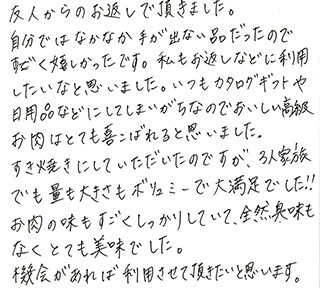 友人からのお返しで頂きました。
自分ではなかなか手が出ない品だったので
すごく嬉しかったです。私もお返しなどに利用
したいなと思いました。いつもカタログギフトや
日用品などにしてしまいがちなのでおいしい高級
お肉はとても喜こばれると思いました。
すき焼きにしていただいたのですが、3人家族
でも量も大きさもボリュミーで大満足でした!!
お肉の味もすごくしっかりしていて、全然臭味も
なくとても美味でした。
機会があれば利用させて頂きたいと思います。